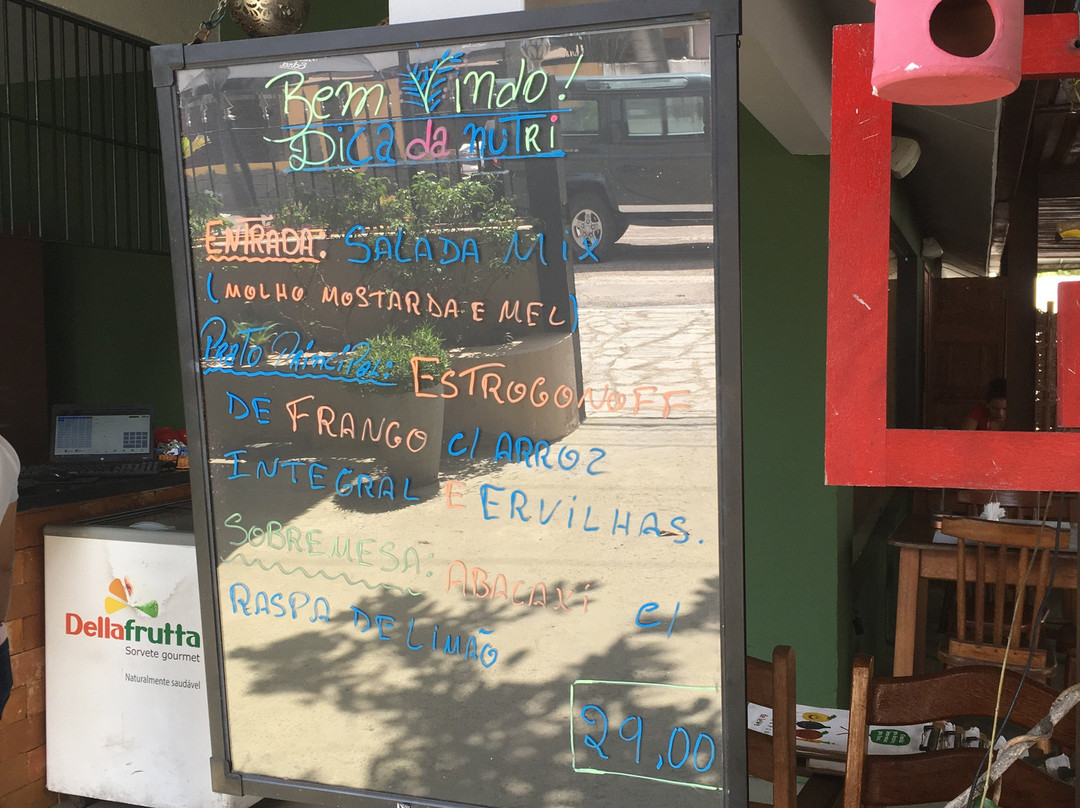 Bem Vindo!
Dica da nutri
ENTRADA: SALADA MIX
(MOLHO MOSTARDA E MEL)
Prato Principal: ESTROGONOFF
DE FRANGO c/ ARROZ
INTEGRAL E ERVILHAS.
SOBREMESA: ABACAXI c/
RASPA DE LIMÃO
29,00
Dellafrutta
Sorvete gourmet
Naturalmente saudável